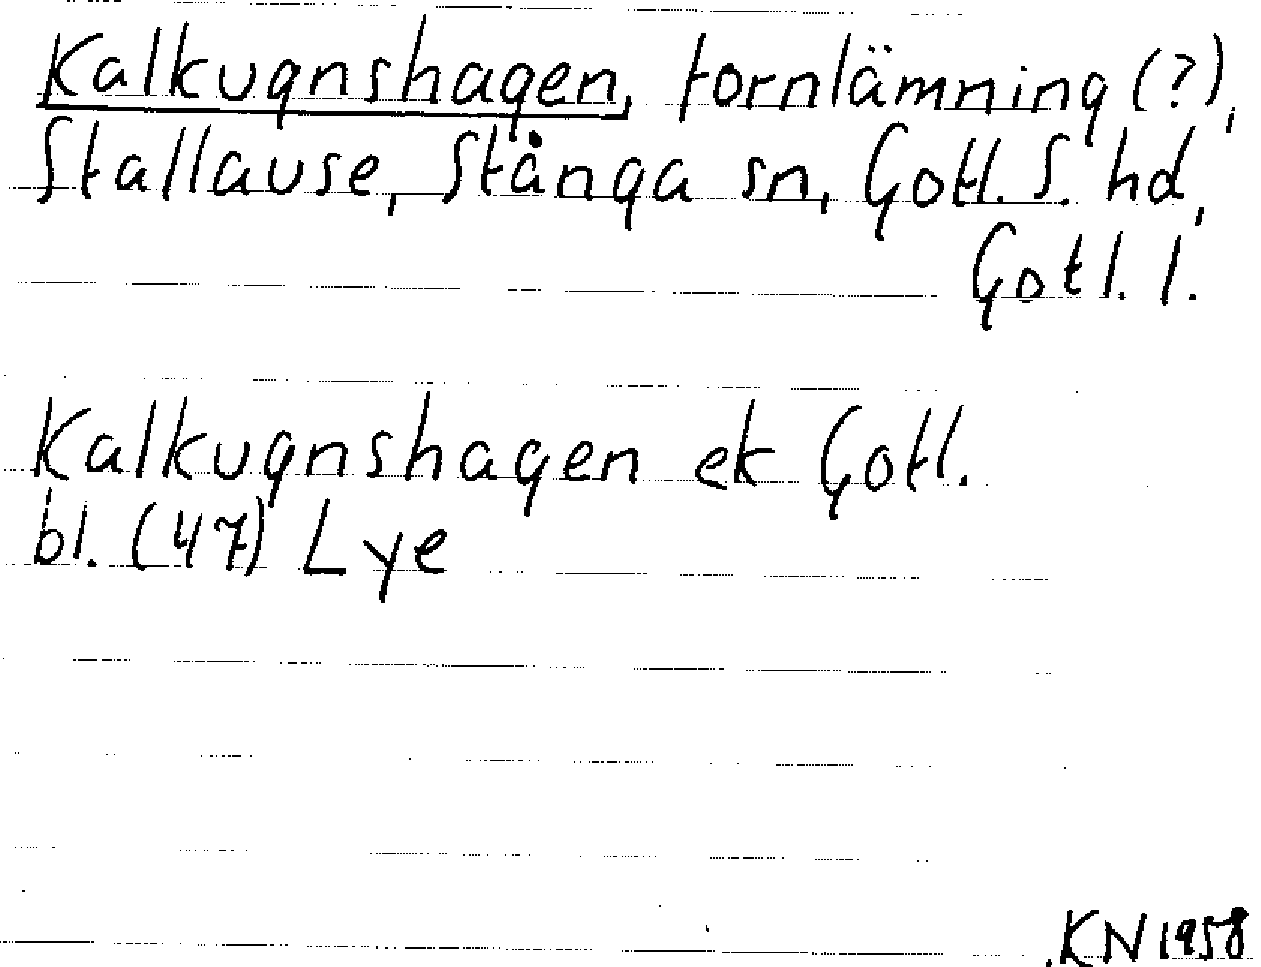 Kalkugnshagen, fornlämning (?),
Stallause, Stånga sn, Gotl. S. hd,
Gotl. l.
Kalkugnshagen ek Gotl.
bl. (47) Lye
KN 1958